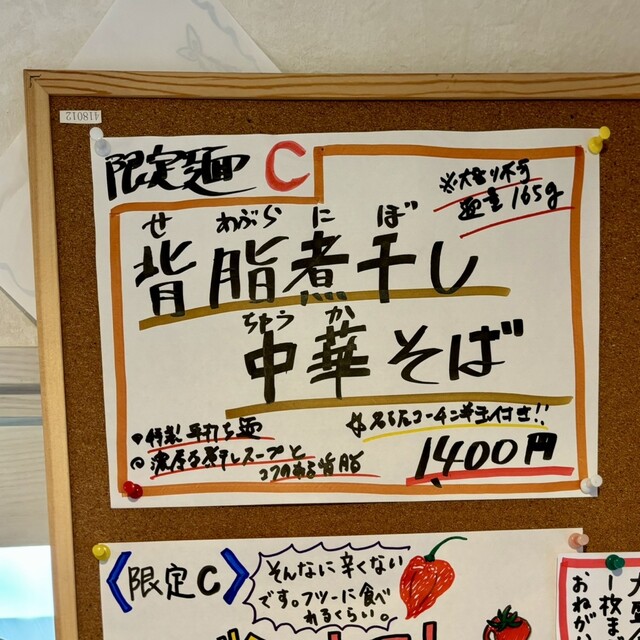 418012
限定麺 C
※大もり不可
麺量165g
せ あぶら に ぼ
背脂煮干し
ちゅう か
中華そば
特製 平打ち麺
濃厚な煮干しスープと
コクのある背脂
名古屋コーチン半玉付き!!
1400円
《限定C》
そんなに辛くない
です。フツーに食べ
れるくらい。
大盛
一枚ま
おねがい